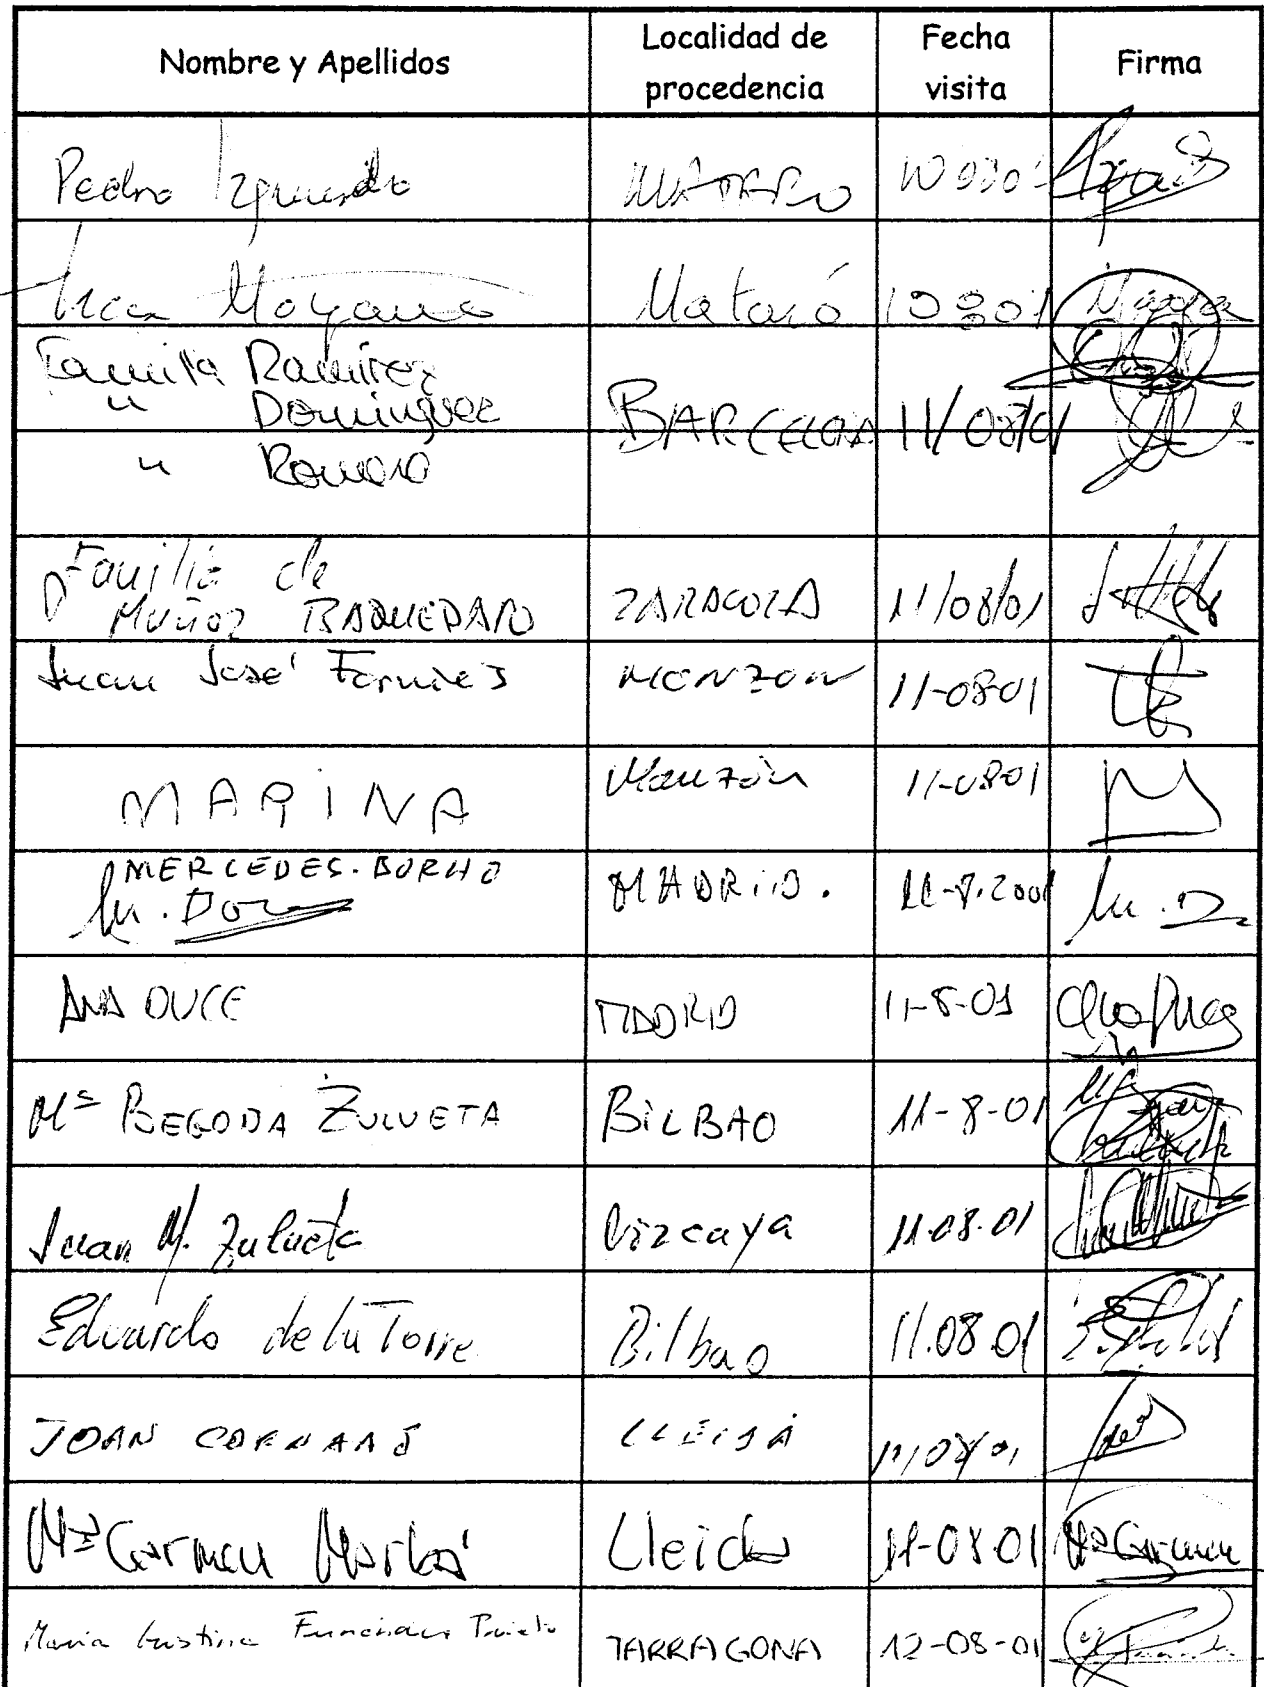 Nombre y Apellidos
Localidad de
procedencia
Fecha
visita
Firma
Pedro Izquierdo MATARO
Moyano Mataró 10 8 01
Familia Ramirez
" Dominguez BARCELONA 11/08/01
" Romero
Familia de
MUÑOZ BAQUEDANO ZARAGOZA 11/08/01
Juan José Fornies MONZON 11-08-01
MARINA Monzón 11-08-01 M
MERCEDES. MADRID. 11-8-2001
ANA DUCE MADRID 11-8-01 Ana Duce
Mª BEGOÑA ZULUETA BILBAO 11-8-01
Juan M. Zulueta Vizcaya 11.08.01
Eduardo de la Torre Bilbao 11.08.01
JOAN LLEIDA 11/08/01
Mª Carmen Lleida 11-08-01 Mª Carmen
Maria Cristina Prieto TARRAGONA 12-08-01